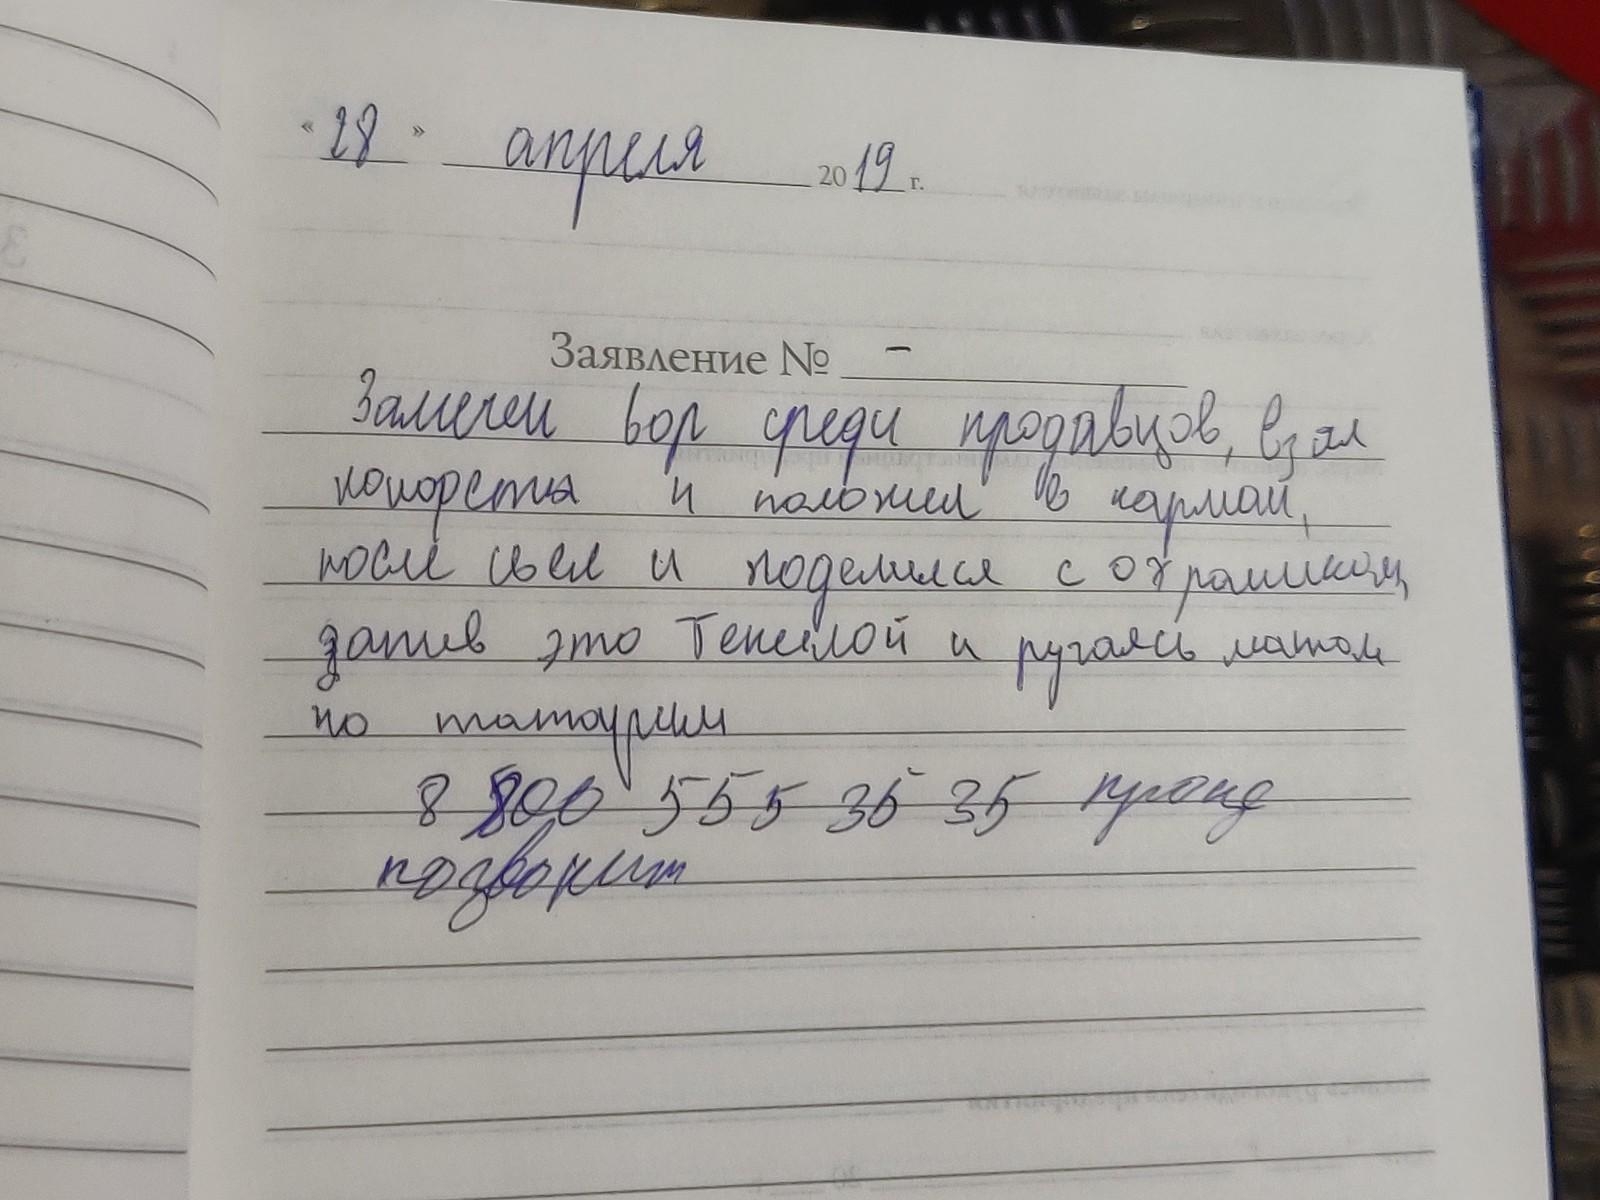 « 28 » апреля 2019 г.
Заявление № -
Замечен вор среди продавцов, взял
и положил в карман,
после съел и поделился с охранником,
запив это Текилой и ругаясь матом
по татарски
8 800 555 35 35 проще
позвонит